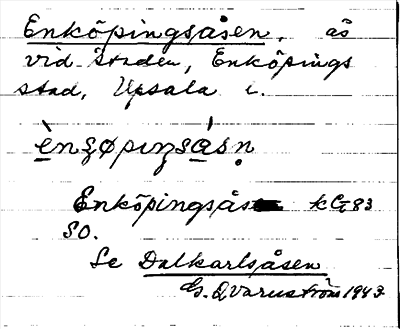 Enköpingsåsen, ås
vid staden, Enköpings
stad, Upsala l.
Enköpingsås
SO.
Se Dalkarlsåsen
G. Qvarnström 1943